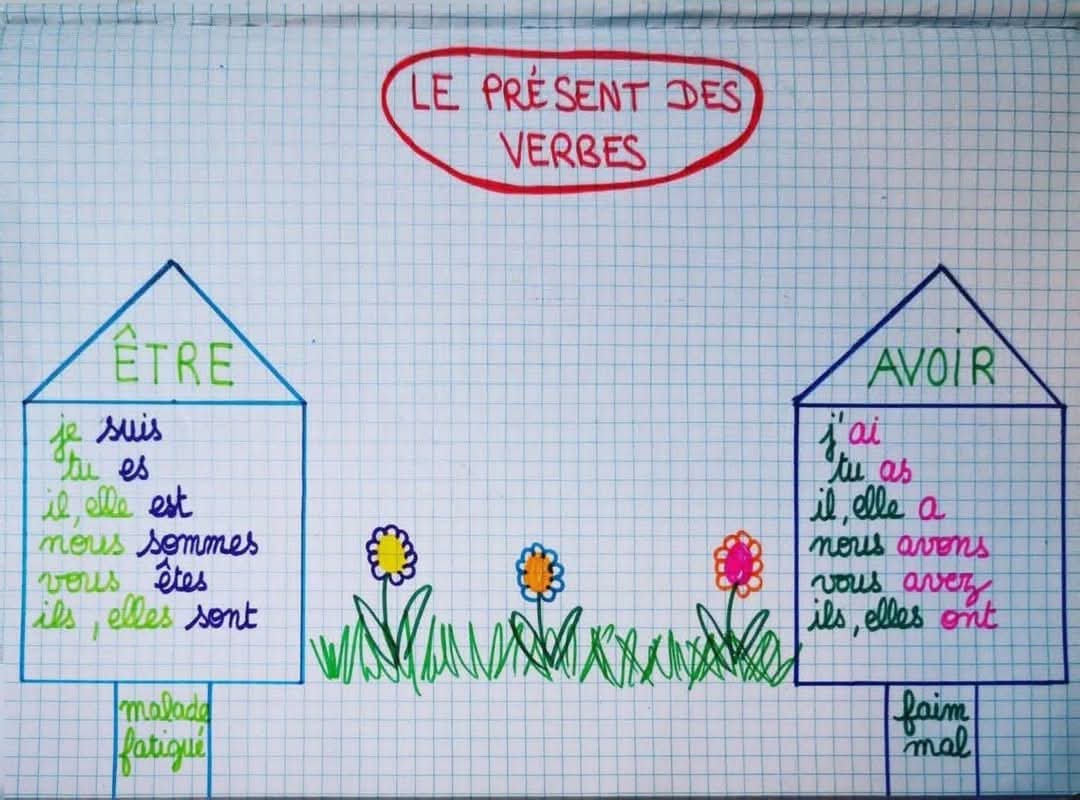 LE PRÉSENT DES
VERBES
ÊTRE
je suis
tu es
il, elle est
nous sommes
vous êtes
ils, elles sont
malade
fatigué
AVOIR
j'ai
tu as
il, elle a
nous avons
vous avez
ils, elles ont
faim
mal